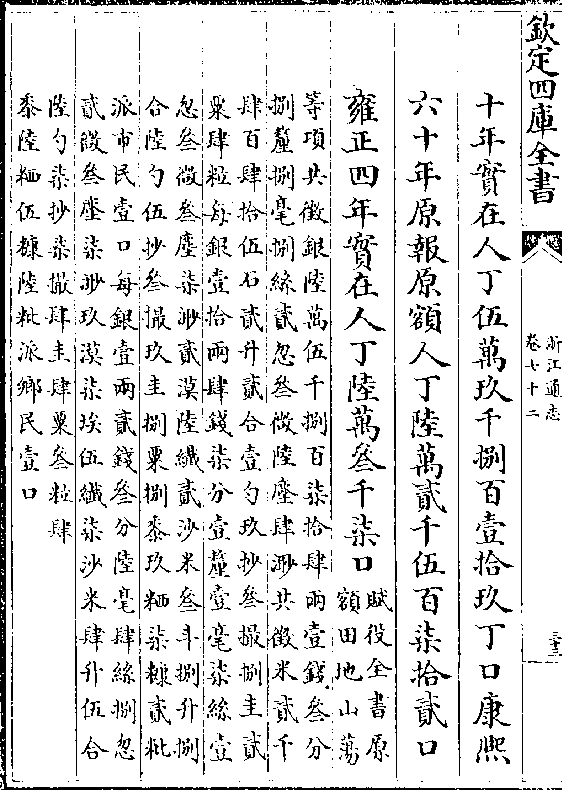 欽定四庫全書
浙江通志
卷七十二
三十三
十年實在人丁伍萬玖千捌百壹拾玖丁口康熙
六十年原報原額人丁陸萬貳千伍百柒拾貳口
雍正四年實在人丁陸萬叁千柒口
賦役全書原
額田地山蕩
等項共徵銀陸萬伍千捌百柒拾肆兩壹錢叁分
捌釐捌毫捌絲貳忽叁微陸塵肆渺共徵米貳千
肆百肆拾伍石貳升貳合壹勺玖抄叁撮捌圭貳
粟肆粒每銀壹拾兩肆錢柒分壹釐壹毫柒絲壹
忽叁微叁塵柒渺貳漠陸纖貳沙米叁斗捌升捌
合陸勺伍抄叁撮玖圭捌粟捌黍玖粞柒糠貳粃
派市民壹口每銀壹兩貳錢叁分陸毫肆絲捌忽
貳微叁塵柒渺玖漠柒埃伍纖柒沙米肆升伍合
陸勺柒抄柒撮肆圭肆粟叁粒肆
黍陸粞伍糠陸粃派鄉民壹口